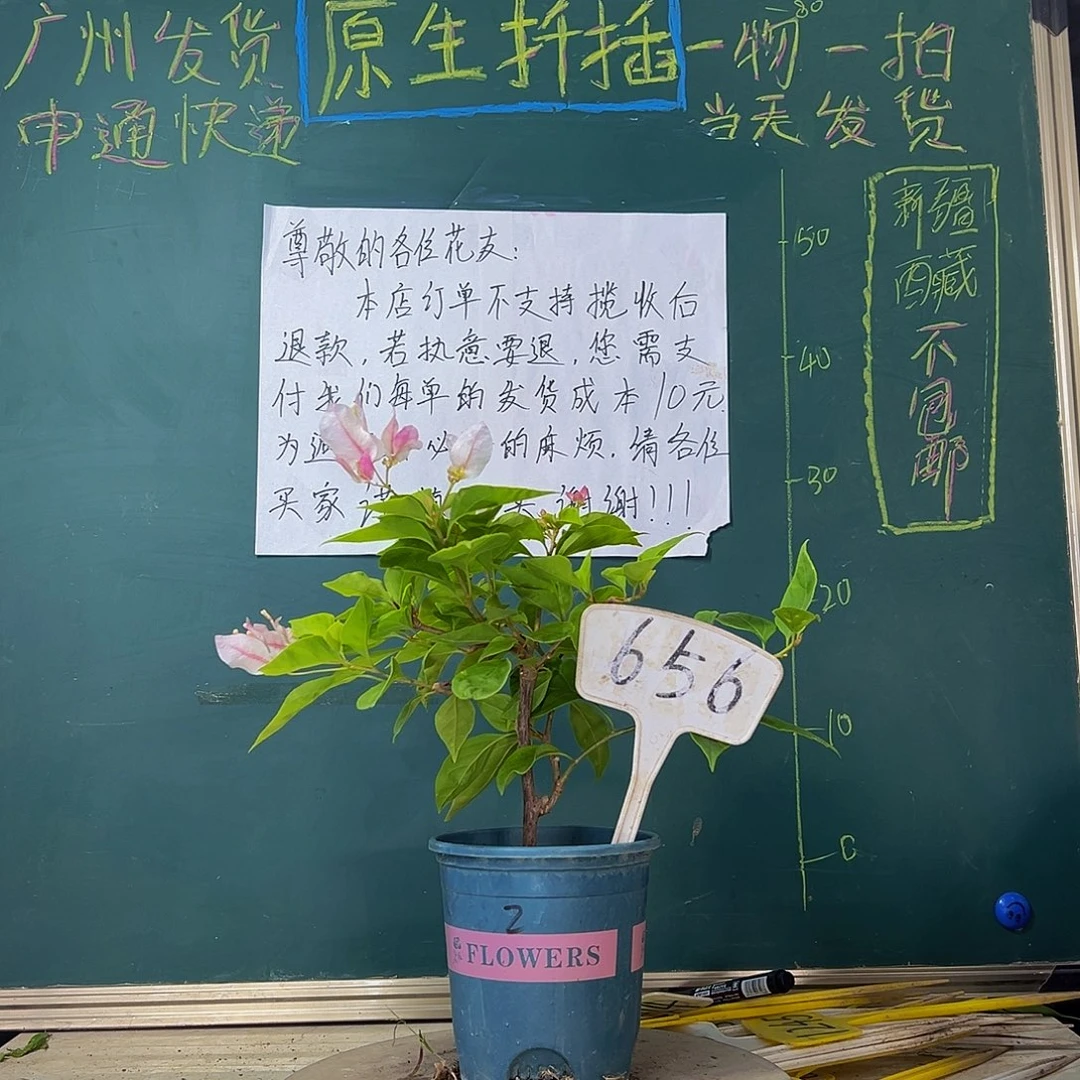 广州发货
原生扦插
一物一拍
申通快递
当天发货
新疆
西藏
不包邮
尊敬的各位花友:
本店订单不支持揽收后
退款,若执意要退,您需支
付我们每单的发货成本10元.
为 必 的麻烦.请各位
买家 谢谢!!!
50
40
30
20
10
0
656
2
FLOWERS